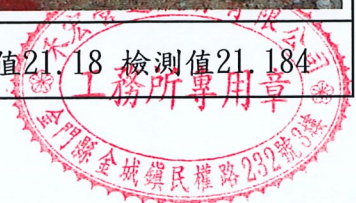 值21.18 檢測值21.184
有限公司
工務所專用章
金門縣金城鎮民權路232號3樓